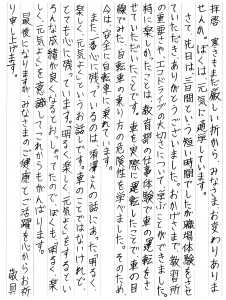 拝啓 寒さもまだ厳しい折から、みなさまお変わりありま
せんか。ぼくは元気に通学しています。
さて、先日は三日間という短い時間でしたが職場体験をさせ
ていただきありがとうございました。おかげさまで、教習所
の重要さや、エコドライブの大切さについて学ぶことができました。
特に楽しかったことは、教習舘の仕事体験で車の運転をさ
せていただいたことです。車を実際に運転したことで車の目
線でみた自転車の乗り方の危険性を学べました。そのため、
今は、安全に自転車に乗れています。
また、一番心に残っているのは、須澤さんの話にあった、明るく、
楽しく、元気よくというお話です。車のことではないけれど、
とても心に残っています。明るく、楽しく、元気よくをするとい
ろんな成績が良くなるとおっしゃってたので、ぼくも、明るく、楽
しく、元気よくを意識してこれからもがんばります。
最後になりますが、みなさまのご健康とご活躍を心からお祈
り申し上げます。
敬具